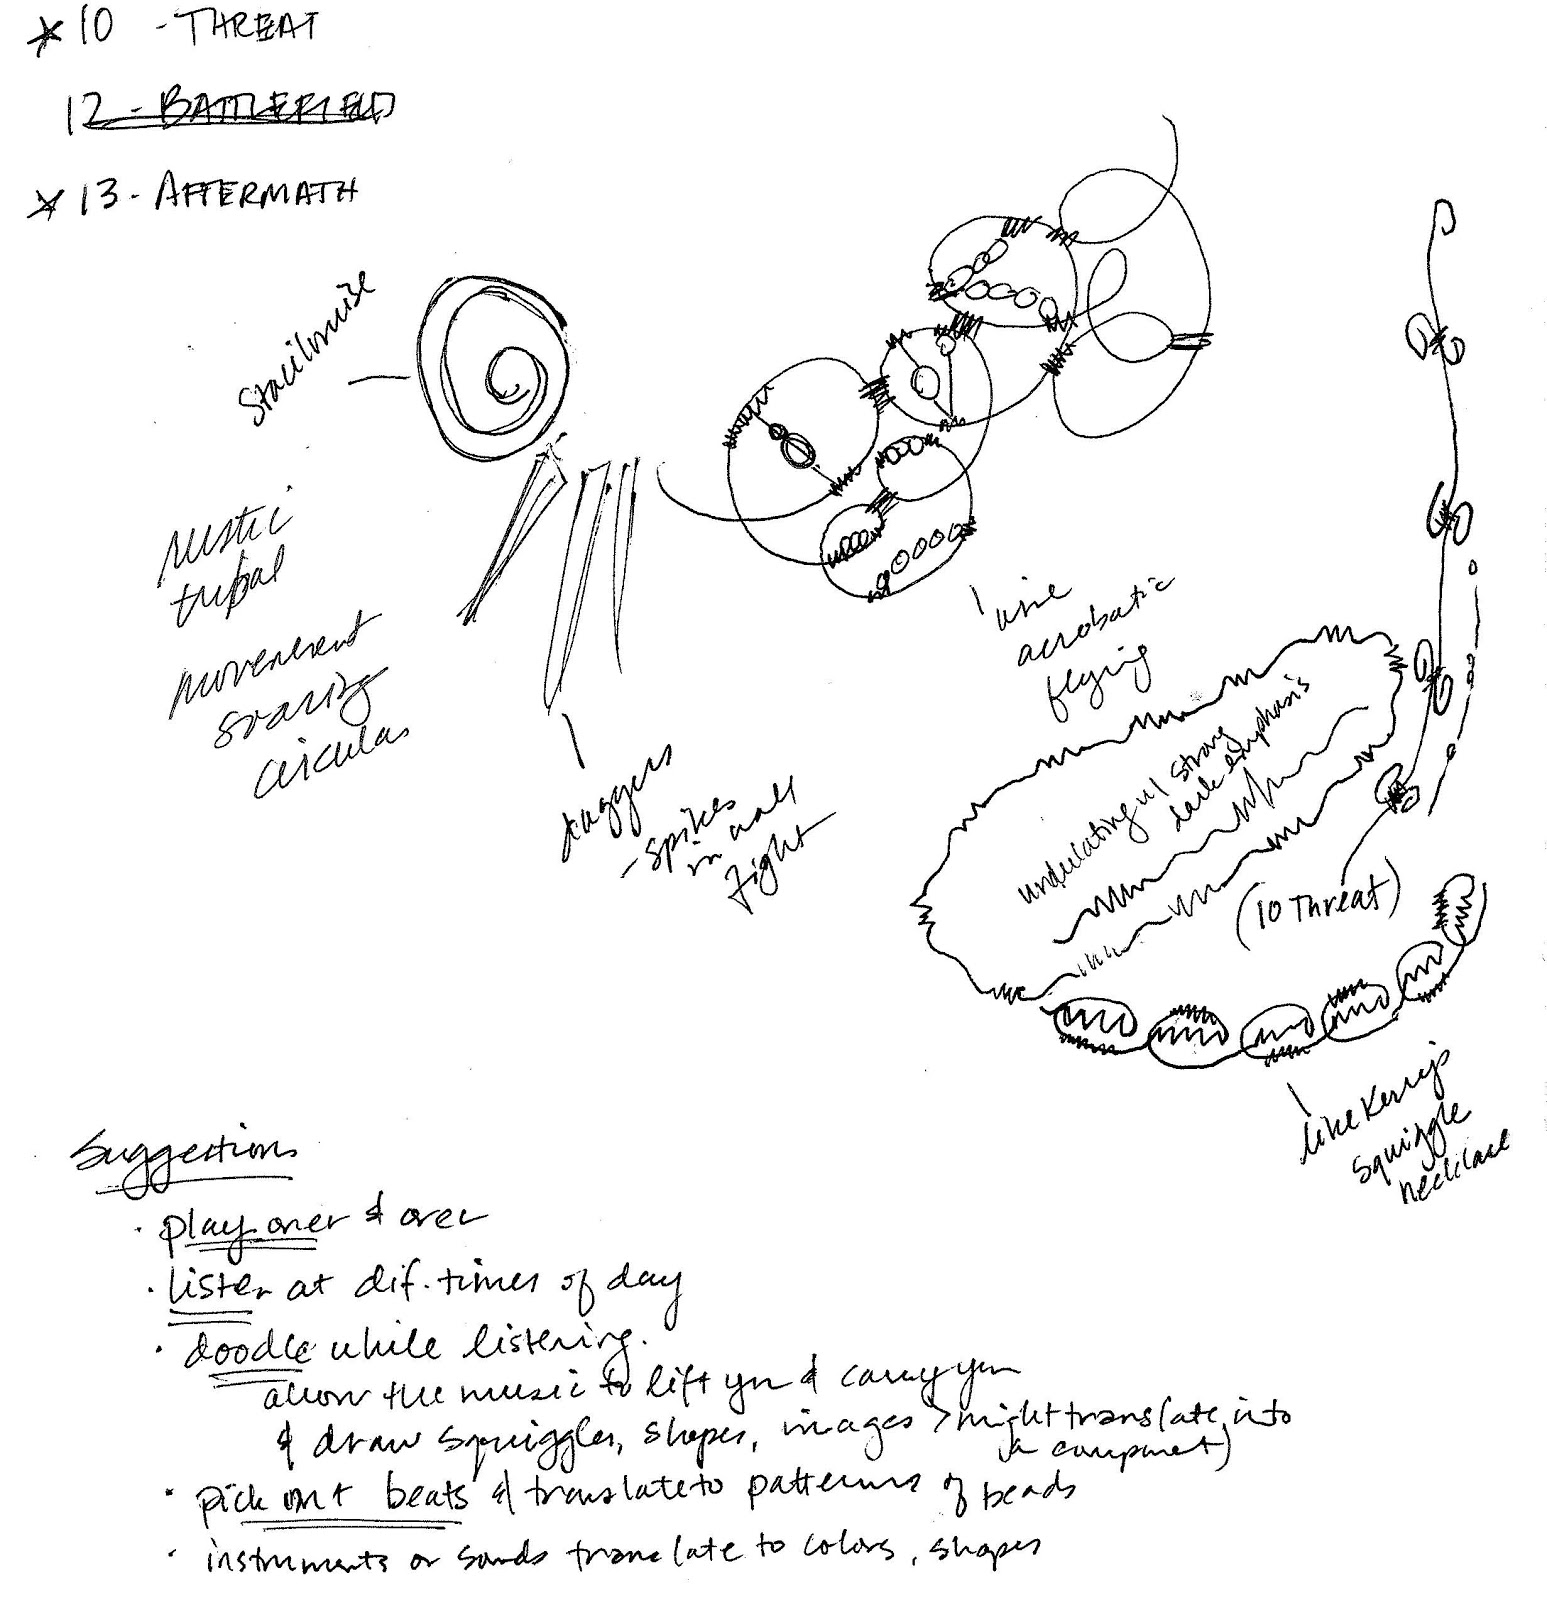 *10 - THREAT
12 - BATTLEFIELD
*13 - AFTERMATH
Stacilouise
rustic
tribal
movement
soaring
circular
daggers
- spikes
in wall
fight
wire
acrobatic
flying
undulating w/ strong
dark emphasis
(10 Threat)
like Kerry's
squiggle
necklace
Suggestions
· play over & over
· listen at dif. times of day
· doodle while listening.
allow the music to lift you & carry you
& draw squiggles, shapes, images > might translate into
a component)
· pick out beats & translate to patterns of beads
· instruments or sounds translate to colors, shapes